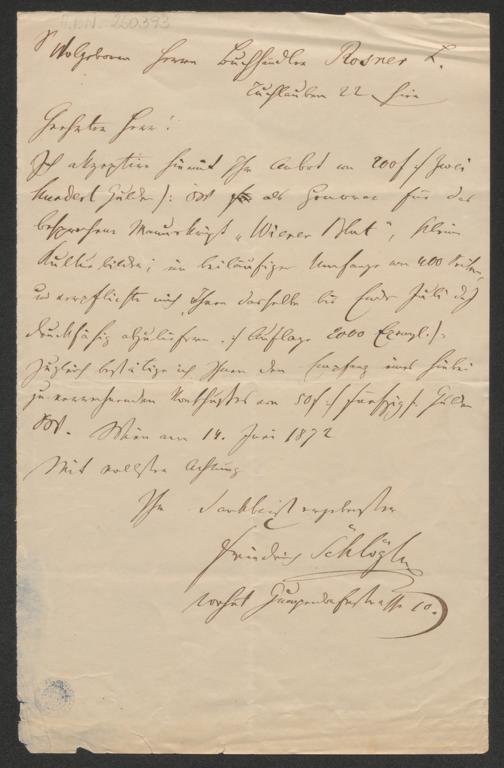 I.N. 260393
Sr Wolgeboren Herrn Buchhändler Rosner L.
Tuchlauben 22 hier
Geehrter Herr!
Ich akzeptire hiemit Ihr Anbot von 200 f :/ zwei
hundert Gulden /: ÖW als Honorar für das
besprochene Manuskript „Wiener Blut", kleine
Kulturbilder; im beiläufigen Umfange von 400 Seiten,
u verpflichte mich Ihnen dasselbe bis Ende Juli d J
druckfähig abzuliefern. :/ Auflage 2000 Exempl. /:
Zugleich bestätige ich Ihnen den Empfang eines hiebei
zu verrechnenden Vorschußes von 50 f :/ fünfzig /: Gulden
ÖW. Wien am 14. Juni 1872
Mit vollster Achtung
Ihr dankbarst ergebenster
Friedrich Schlögl
wohnt Gumpendorferstrasse 10.